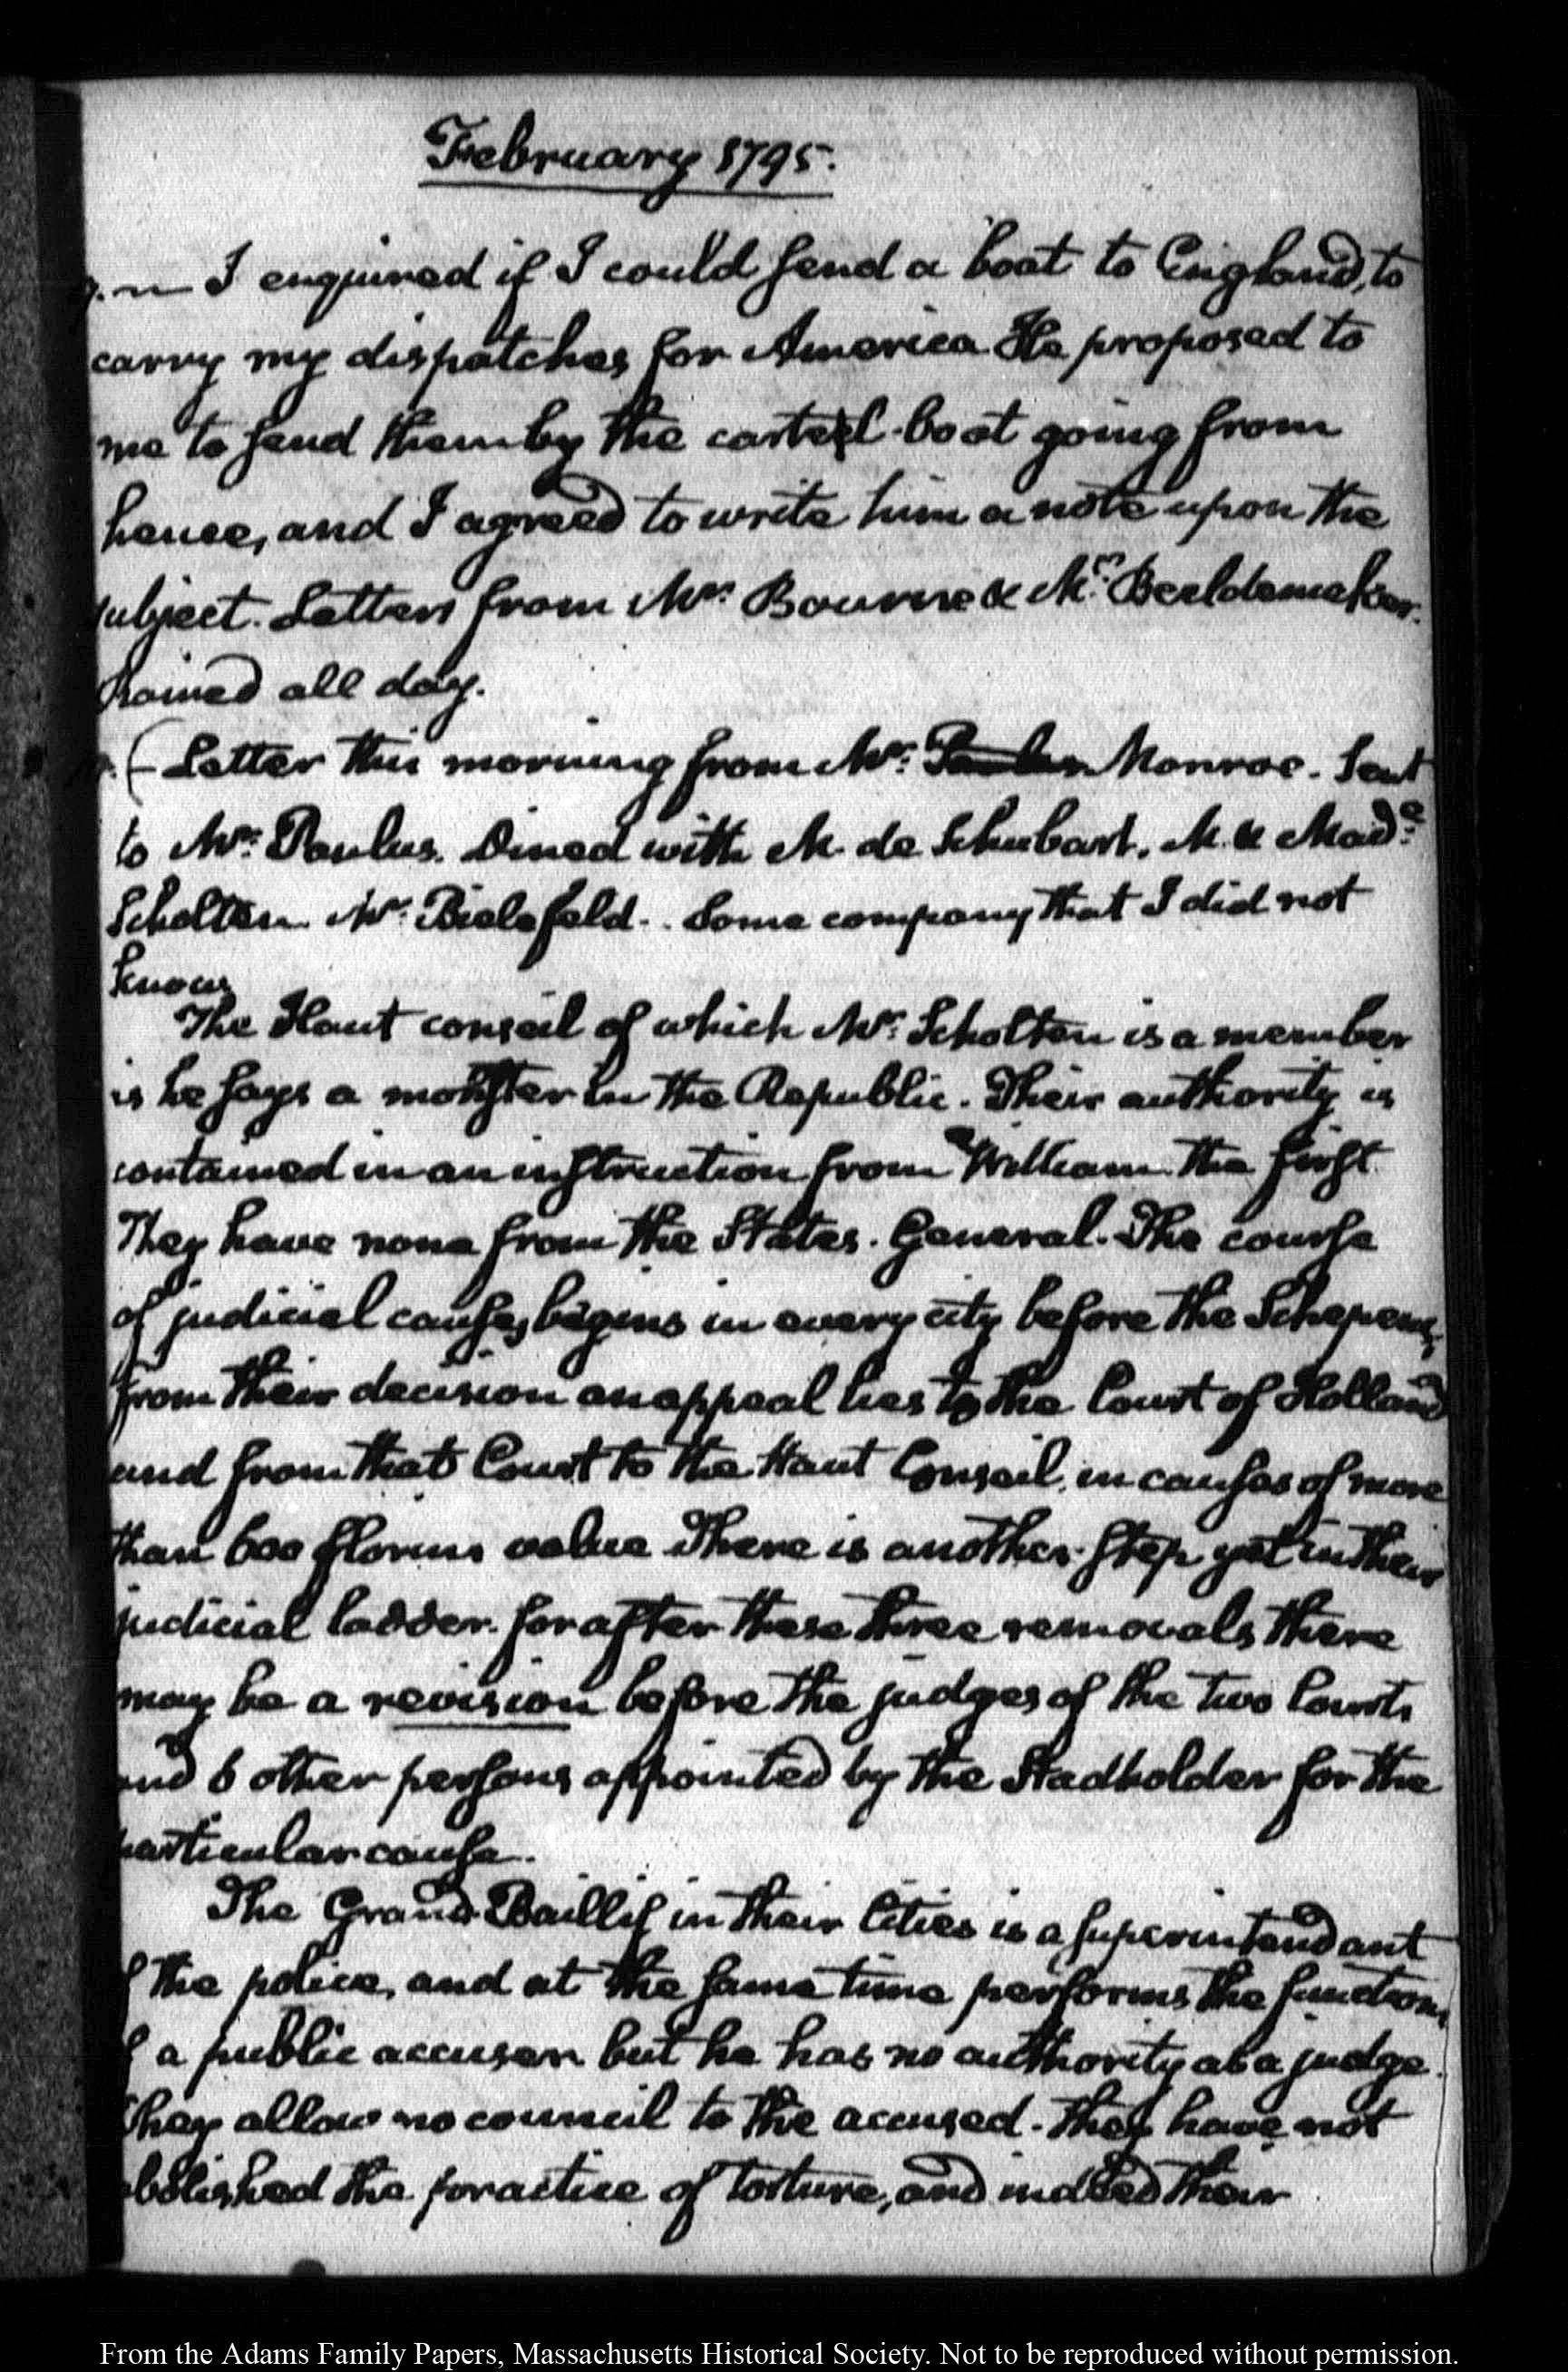 February 1795.
I enquired if I could send a boat to England, to
carry my dispatches for America. He proposed to
me to send them by the cartel-boat going from
hence, and I agreed to write him a note upon the
subject. Letters from Mr. Bourne & Mr. Beeldemaker.
Rained all day.
Letter this morning from Mr. Paulus Monroe. Sent
to Mr. Paulus. Dined with M. de Schubart. M. & Made.
Scholten. Mr. Bielefeld. Some company that I did not
know
The Haut conseil of which Mr. Scholten is a member
is he says a monster in the Republic. Their authority is
contained in an instruction from William the first.
They have none from the States. General. The course
of judicial causes begins in every city before the Schepens,
from their decision an appeal lies to the Court of Holland
and from that Court to the Haut Conseil, in causes of more
than 600 florins value. There is another step yet in their
judicial ladder. for after these three removals there
may be a revision before the judges of the two Courts
and 6 other persons appointed by the Stadholder for the
particular cause.
The Grand Baillif in their Cities is a superintendant
of the police, and at the same time performs the functions
of a public accuser but he has no authority as a judge.
They allow no council to the accused. they have not
abolished the practice of torture, and indeed their
From the Adams Family Papers, Massachusetts Historical Society. Not to be reproduced without permission.